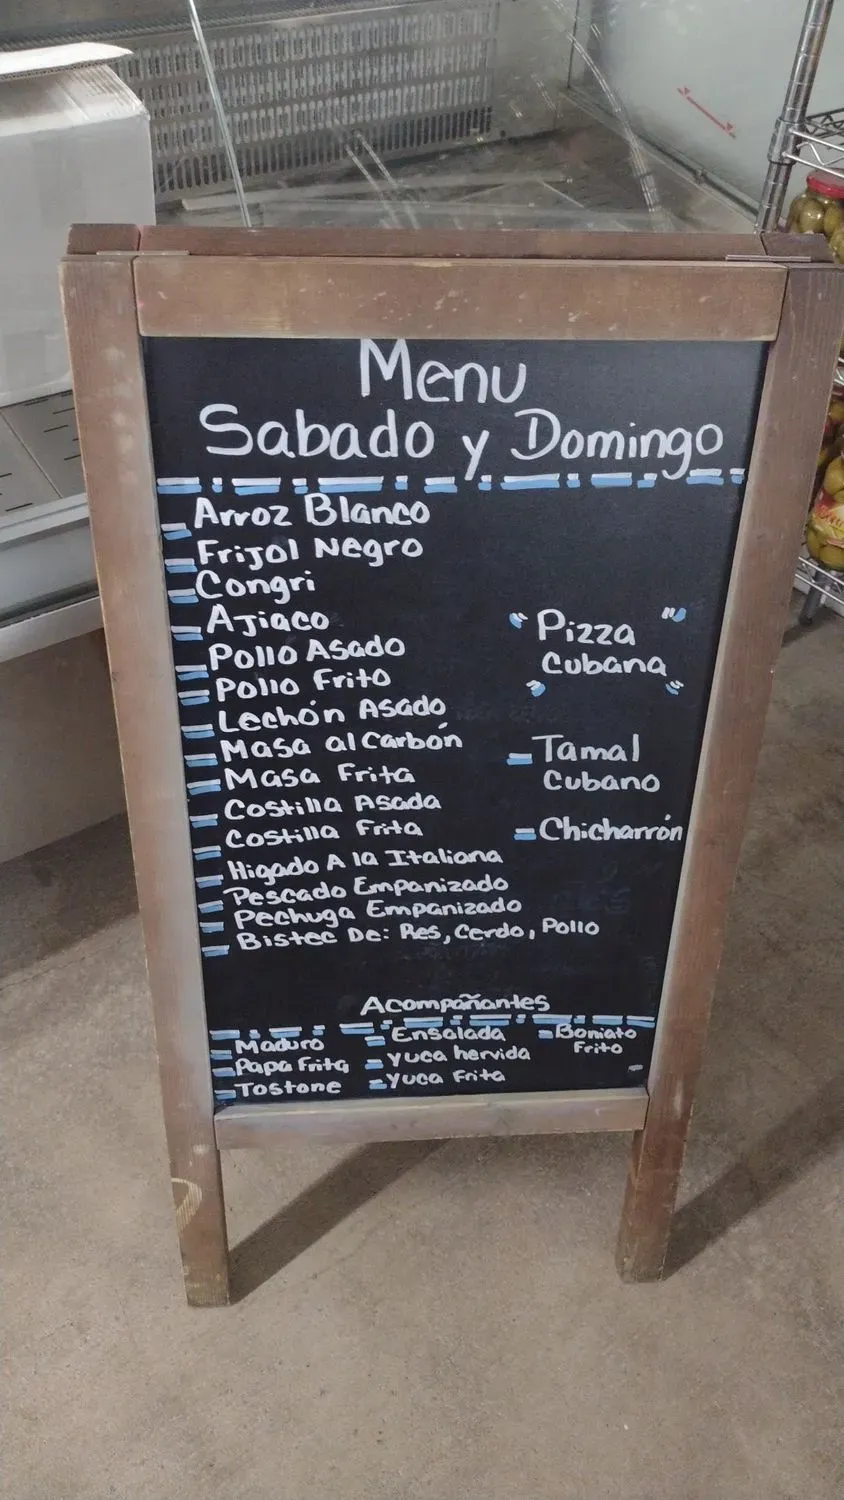 Menu
Sabado y Domingo
Arroz Blanco
Frijol Negro
Congri
Ajiaco
Pollo Asado
Pollo Frito
Lechón Asado
Masa al Carbón
Masa Frita
Costilla Asada
Costilla Frita
Higado A la Italiana
Pescado Empanizado
Pechuga Empanizado
Bistec De: Res, Cerdo, Pollo
"Pizza"
Cubana
Tamal
Cubano
Chicharrón
Acompañantes
Maduro
Papa Frita
Tostone
Ensalada
Yuca hervida
Yuca Frita
Boniato
Frito